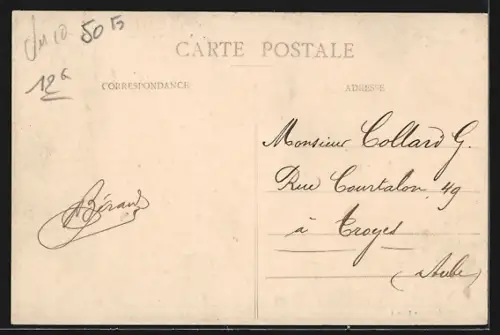 50
CARTE POSTALE
12
CORRESPONDANCE
ADRESSE
Monsieur Collard G.
Rue Courtalon 49
à Troyes
(Aube)
Béraud